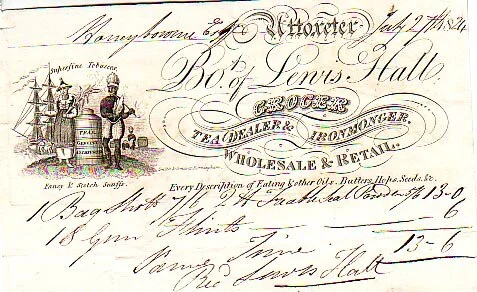 Honeybourne Esqr Uttoxeter July 27th 1824
Bot. of Lewis Hall.
GROCER
TEA DEALER & IRONMONGER.
WHOLESALE & RETAIL.
Superfine Tobaccos,
TEAS
GENUINE
Fancy & Scotch Snuffs.
Every Description of Eating & other Oils, Butters, Hops, Seeds, &c.
1 Bag Shott 7/6 Powder 13-0
18 Gun Flints 6
13-6
Same Time
Recd Lewis Hall